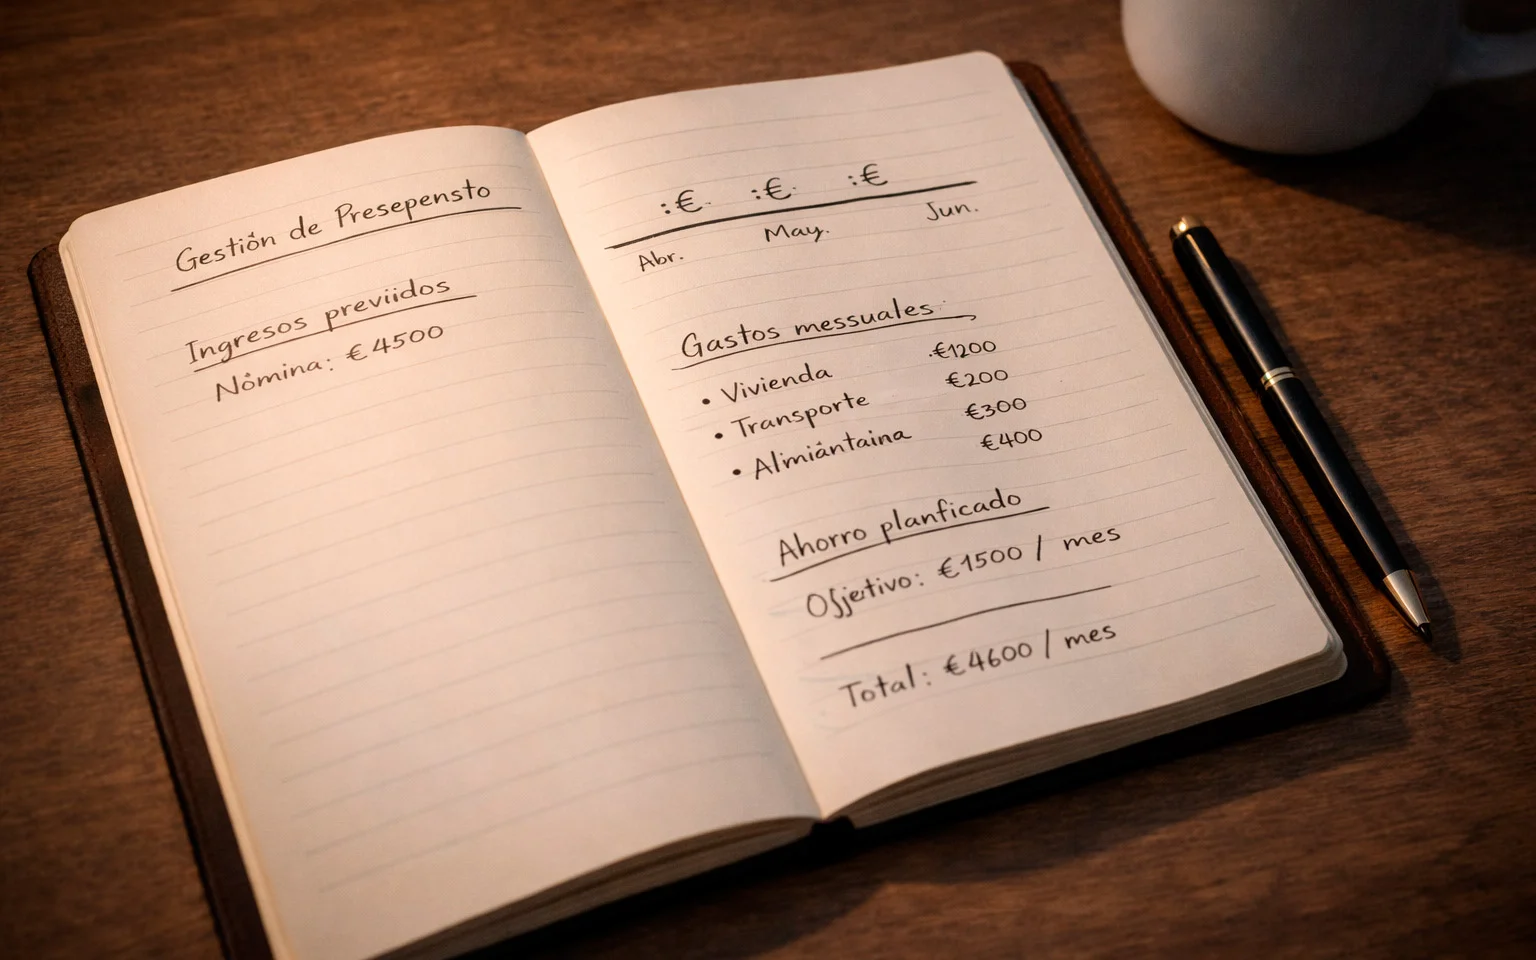 Gestión de Presepensto
Ingresos previidos
Nómina: €4500
:€. :€. :€
Abr. May. Jun.
Gastos messuales
• Vivienda €1200
• Transporte €200
• Alimiántaina €300
€400
Ahorro planficado
Objetivo: €1500 / mes
Total: €4600 / mes